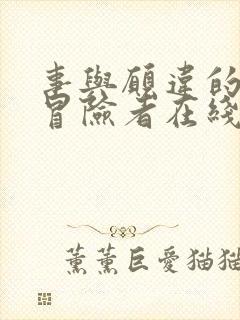 事與願違的
冒險者在綫
薰薰巨愛猫猫